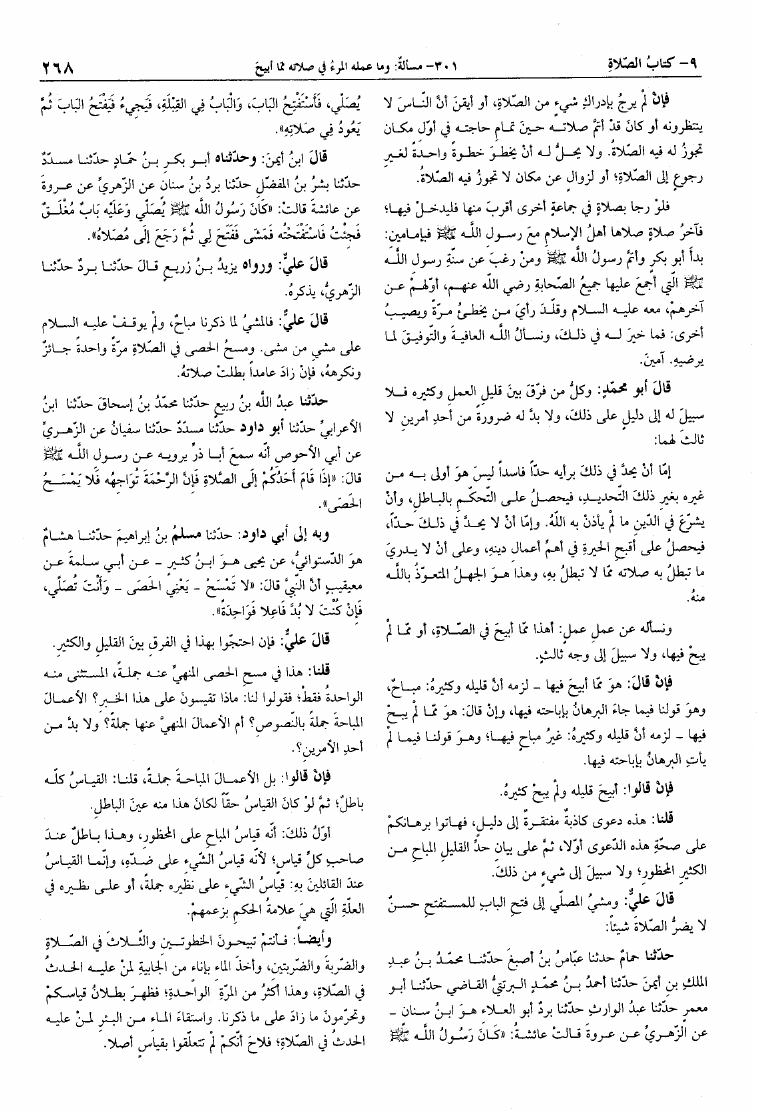 ٩- كتابُ الصَّلاةِ
٣٠١- مسألةٌ: وما عمله المرءُ في صلاته ممَّا أبيحَ
٢٦٨
فإنْ لم يرجُ بإدراكِ شيءٍ من الصَّلاةِ، أو أيقنَ أنَّ النَّاسَ لا
ينتظرونه أو كانَ قدْ أتمَّ صلاتــه حـينَ تمـامِ حاجتـه في أوّلِ مكـان
تجوزُ له فيه الصَّلاةُ. ولا يحـلُّ لـه أنْ يخطـوَ خطـوةً واحـدةً لغـيرِ
رجوعٍ إلى الصَّلاةِ؛ أو لزوالٍ عن مكان لا تجوزُ فيه الصَّلاةُ.
فلوْ رجا بصلاةٍ في جماعةٍ أخرى أقربَ منها فليدخـلْ فيهـا؛
فآخـرُ صـلاةٍ صلاهـا أهلُ الإسـلامِ مـعَ رسـولِ اللَّـه ﷺ فبإمـامينِ:
بدأ أبو بكرٍ وأتمَّ رسولُ اللَّه ﷺ ومنْ رغبَ عن سنَّةِ رسولِ اللَّـه
ﷺ الَّتي أجمعَ عليها جميعُ الصَّحابةِ رضي الله عنهـم، أوَّلهـمْ عـن
آخرهمْ، معه عليـه السـلام وقلَّـدَ رأيَ مـن يخطـئُ مـرَّةً ويصيـبُ
أخرى: فما خيرَ لـه في ذلـكَ، ونسـألُ اللَّـه العافيـةَ والتَّوفيـقَ لمـا
يرضيهِ. آمينَ.
قالَ أبو محمَّدٍ: وكلُّ من فرَّقَ بينَ قليلِ العملِ وكثيره فـلا
سبيلَ له إلى دليلٍ على ذلكَ، ولا بدَّ له ضرورةً من أحدِ أمرينِ لا
ثالثَ لهما:
إمَّا أنْ يحدَّ في ذلكَ برأيه حدّاً فاسداً ليسَ هـوَ أولى بـه مـن
غيره بغيرِ ذلكَ التَّحديـدِ، فيحصـلُ علـى التَّحكّـمِ بالبـاطلِ، وأنْ
يشرّعَ في الدّينِ ما لم يأذنْ به اللَّهُ. وإمَّا أنْ لا يحـدَّ في ذلـكَ حـدّاً،
فيحصلُ على أقبحِ الحيرةِ في أهمِّ أعمالِ دينهِ، وعلى أنْ لا يـدريَ
ما تبطلُ به صلاته ممَّا لا تبطلُ بهِ، وهذا هـوَ الجهـلُ المتعـوَّذُ باللَّـه
منهُ.
ونسأله عن عملٍ عملٍ: أهذا ممَّا أبيحَ في الصَّلاةِ، أو ممَّـا لمْ
يبحْ فيها، ولا سبيلَ إلى وجه ثالثٍ.
فإنْ قالَ: هوَ ممَّا أبيحَ فيها - لزمه أنَّ قليله وكثيرهُ: مبـاحٌ،
وهوَ قولنا فيما جاءَ البرهانُ بإباحته فيها، وإنْ قالَ: هوَ ممَّـا لم يبـحْ
فيها - لزمه أنَّ قليله وكثيرهُ: غيرُ مباحٍ فيهـا؛ وهـوَ قولنـا فيمـا لم
يأتِ البرهانُ بإباحته فيها.
فإنْ قالوا: أبيحَ قليله ولم يبحْ كثيرهُ.
قلنا: هذه دعوى كاذبةٌ مفتقـرةٌ إلى دليـلٍ، فهـاتوا برهـانكمْ
على صحَّةِ هذه الدَّعوى أوّلا، ثمَّ علـى بيـانِ حدِّ القليلِ المبـاحِ مـن
الكثيرِ المحظورِ؛ ولا سبيلَ إلى شيءٍ من ذلكَ.
قالَ عليٌّ: ومشيُ المصلِّي إلى فتحِ البابِ للمستفتحِ حسـنٌ
لا يضرُّ الصَّلاةَ شيئاً:
حدَّثنا حمامٌ حدثنا عبَّـاسُ بـنُ أصبـغَ حدَّثنـا محمَّـدُ بـنُ عبـدِ
الملكِ بنِ أيمنَ حدَّثنا أحمدُ بـنُ محمَّـدٍ البرتـيُّ القـاضي حدَّثنـا أبـو
معمرٍ حدَّثنا عبدُ الوارثِ حدَّثنا بردٌ أبو العـلاءِ هـوَ ابـنُ سـنان -
عن الزّهريِّ عـن عـروةَ قـالتْ عائشـةُ: «كَـانَ رَسُولُ اللَّه ﷺ
يُصَلِّي، فَأَسْتَفْتِحُ البَابَ، وَالْبَابُ فِي القِبْلَةِ، فَيَجِيءُ فَيَفْتَحُ البَابَ ثُمَّ
يَعُودُ فِي صَلاتِهِ».
قالَ ابنُ أيمنَ: وحدَّثناه أبـو بكـرِ بـنُ حَّمـادٍ حدَّثنا مسـدَّدٌ
حدَّثنا بشرُ بنُ المفضّلِ حدَّثنا بردُ بنُ سنان عن الزّهريِّ عن عروةَ
عن عائشةَ قالتْ: «كَانَ رَسُولُ اللَّه ﷺ يُصَلِّي وَعَلَيْهِ بَابٌ مُغْلَـقٌ
فَجِئْتُ فَاسْتَفْتَحْته فَمَشَى فَفَتَحَ لِي ثُمَّ رَجَعَ إلَى مُصَلاَّهُ».
قالَ عليٌّ: ورواه يزيدُ بـنُ زريـعٍ قـالَ حدَّثنـا بـردٌ حدَّثنـا
الزّهريُّ، يذكرهُ.
قالَ عليٌّ: فالمشيُ لما ذكرنا مباحٌ، ولم يوقـفْ عليـه السـلام
على مشيٍ من مشيٍ. ومسحُ الحصى في الصَّلاةِ مرَّةً واحدةً جـائزٌ
ونكرههُ، فإنْ زادَ عامداً بطلتْ صلاتهُ.
حدَّثنا عبدُ اللَّه بنُ ربيعٍ حدَّثنا محمَّدُ بنُ إسحاقَ حدَّثنا ابنُ
الأعرابيِّ حدَّثنا أبو داود حدَّثنا مسدَّدٌ حدَّثنا سفيانُ عن الزّهـريِّ
عن أبي الأحوصِ أنَّه سمعَ أبـا ذرٍّ يرويـه عـن رسـولِ اللَّـه ﷺ
قالَ: «إذَا قَامَ أَحَدُكُمْ إلَى الصَّلاةِ فَإِنَّ الرَّحْمَةَ تُوَاجِهُه فَلا يَمْسَـحُ
الحَصَى».
وبه إلى أبي داود: حدَّثنا مسلمُ بنُ إبراهيمَ حدَّثنـا هشـامٌ
هوَ الدّستوائيُّ، عن يحيى هـوَ ابـنُ كثـيرٍ - عـن أبـي سـلمةَ عـن
معيقيبٍ أنَّ النَّبيَّ قالَ: «لا تَمْسَحْ - يَعْنِي الحَصَى - وَأَنْتَ تُصَلِّي،
فَإِنْ كُنْت لا بُدَّ فَاعِلا فَوَاحِدَةً».
قالَ عليٌّ: فإن احتجّوا بهذا في الفرقِ بينَ القليلِ والكثيرِ.
قلنا: هذا في مسحِ الحصى المنهيِّ عنـه جملـةً، المسـتثنى منـه
الواحدةُ فقطْ؛ فقولوا لنا: ماذا تقيسونَ على هذا الخـبرِ؟ الأعمـالَ
المباحةَ جملةً بالنّصوصِ؟ أم الأعمالَ المنهيَّ عنها جملةً؟ ولا بدَّ مـن
أحدِ الأمرينِ؟.
فإنْ قالوا: بل الأعمـالَ المباحـةَ جملـةً، قلنـا: القيـاسُ كلّـه
باطلٌ؛ ثمَّ لوْ كانَ القياسُ حقّاً لكانَ هذا منه عينَ الباطلِ.
أوّلُ ذلكَ: أنَّه قياسُ المباحِ على المحظورِ، وهـذا بـاطلٌ عنـدَ
صاحبِ كلِّ قياسٍ؛ لأنَّه قياسُ الشَّيءِ على ضـدّهِ، وإنَّمـا القيـاسُ
عندَ القائلينَ بهِ: قياسُ الشَّيءِ على نظيره جملةً، أو علـى نظـيره في
العلَّةِ الَّتي هيَ علامةُ الحكمِ بزعمهمْ.
وأيضـاً: فـأنتمْ تبيحـونَ الخطوتـينِ والثَّـلاثَ في الصَّـلاةِ
والضَّربةَ والضَّربتينِ، وأخذَ الماءِ بإناءٍ من الجابيةِ لمنْ عليـه الحدثُ
في الصَّلاةِ، وهذا أكثرُ من المرَّةِ الواحـدةِ؛ فظهـرَ بطـلانُ قياسكمْ
وتحرّمونَ ما زادَ على ما ذكرنا. واستقاءَ المـاءِ مـن البـئرِ لمـنْ عليـه
الحدثُ في الصَّلاةِ؛ فلاحَ أنَّكمْ لم تتعلَّقوا بقياسٍ أصلا.